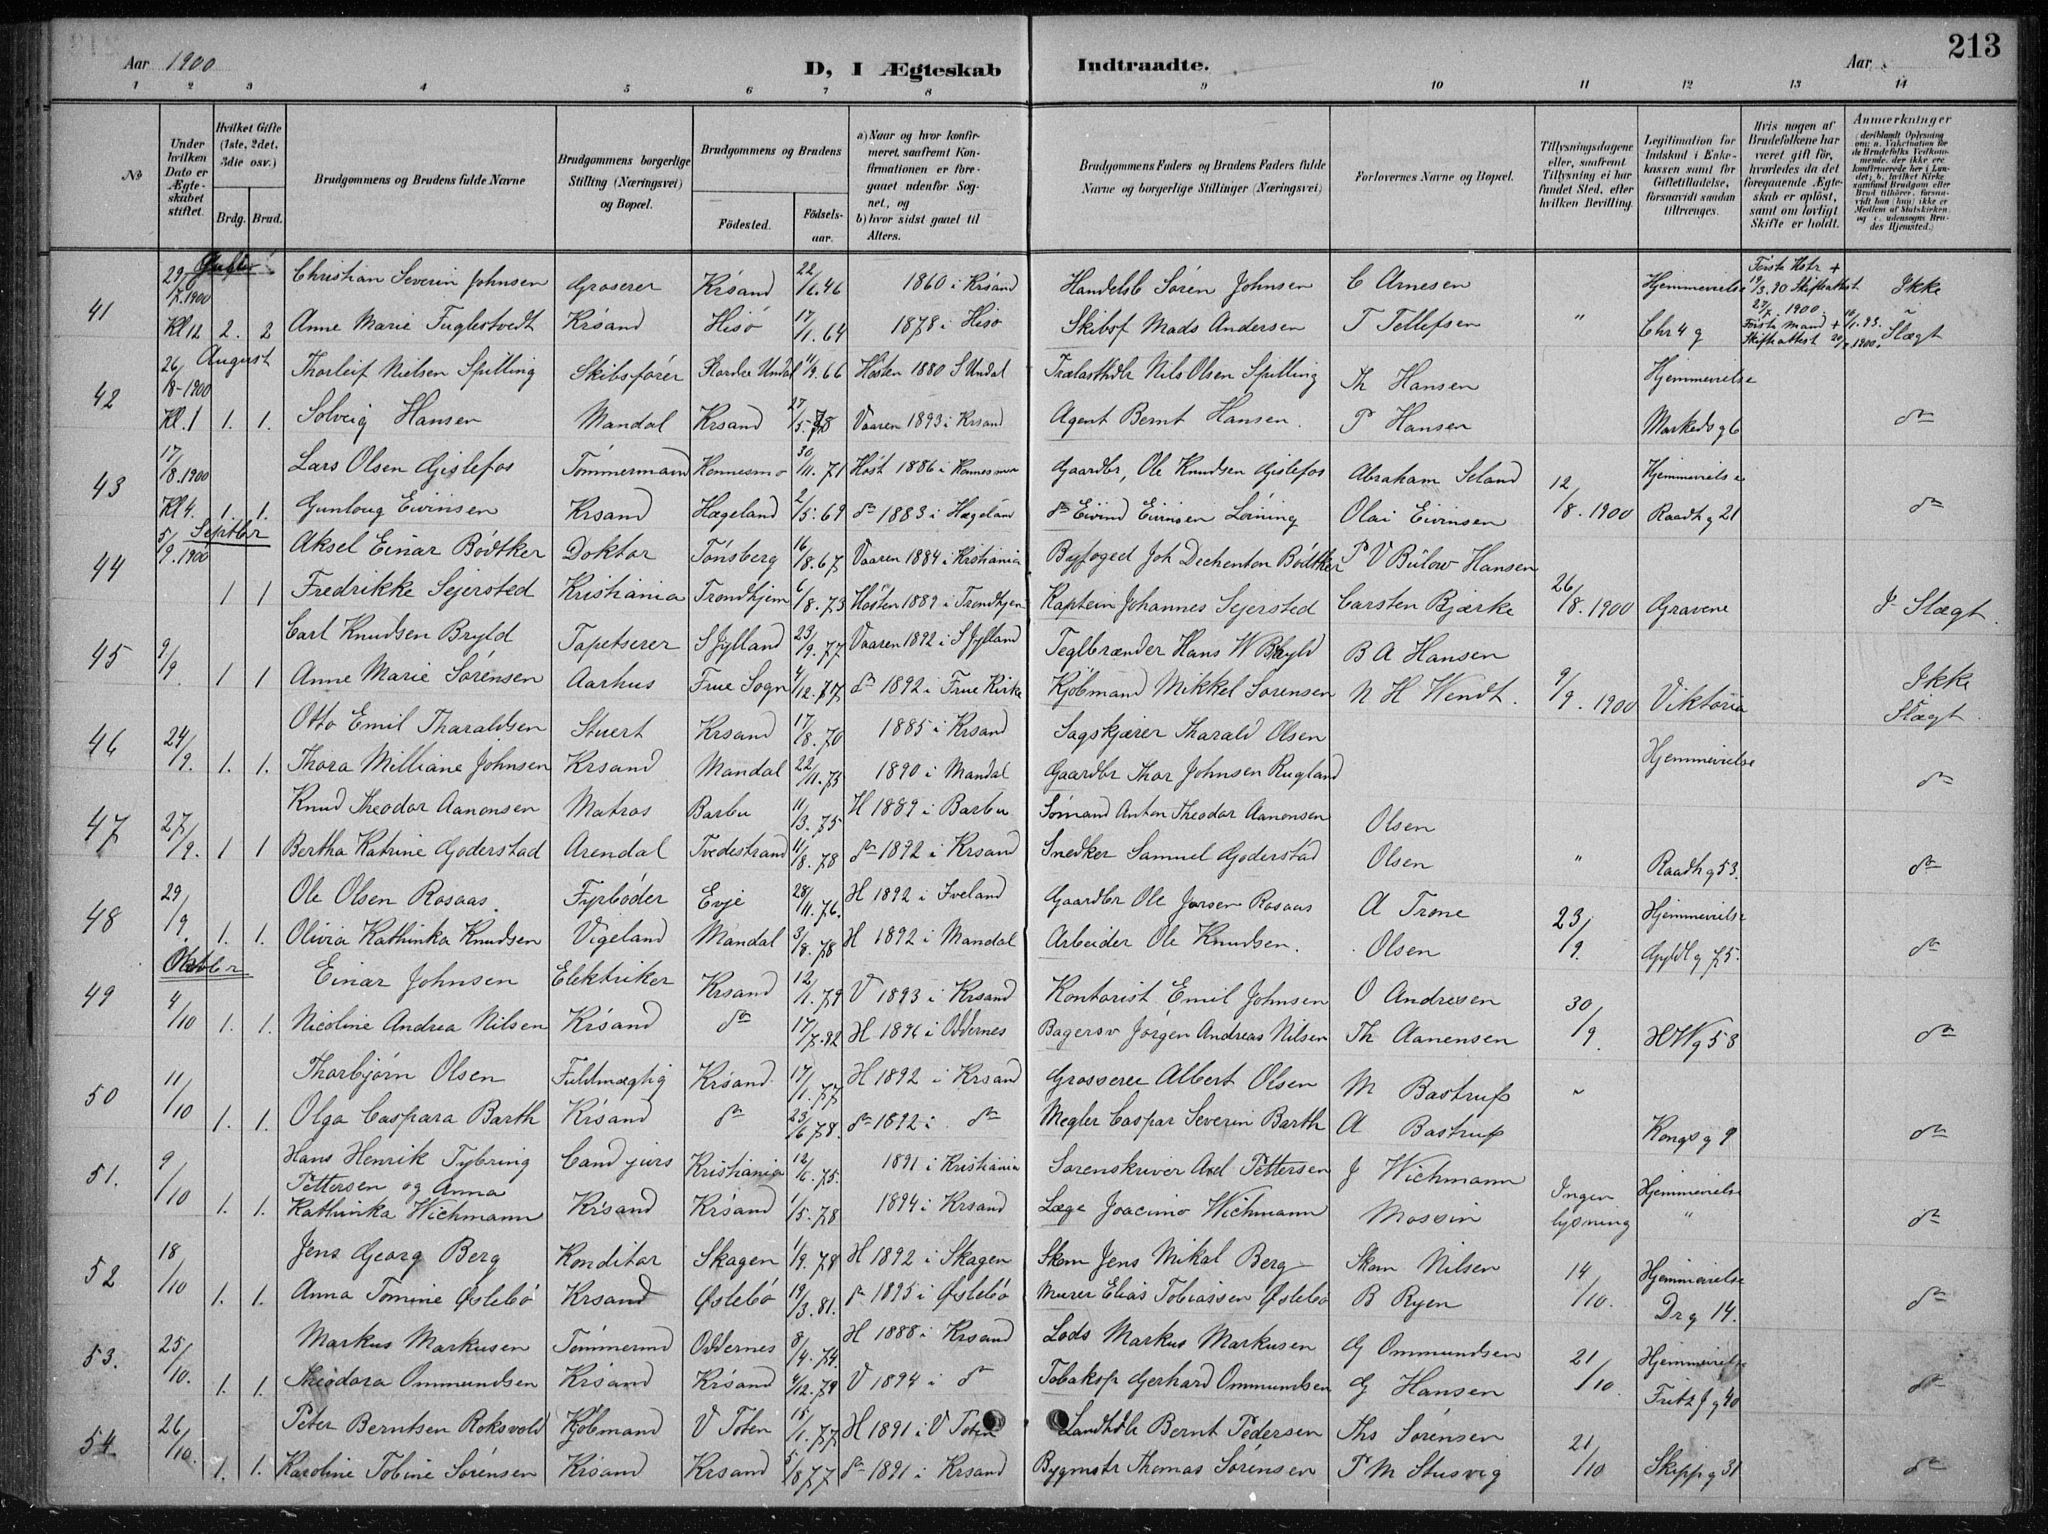 213
Aar 1900
D, I Ægteskab Indtraadte.
Aar
1 2 3 4 5 6 7 8 9 10 11 12 13 14
No
Under hvilken Dato er Ægteskabet stiftet.
Hvilket Gifte (1ste, 2det, 3die osv.)
Brdg. Brud.
Brudgommens og Brudens fulde Navne
Brudgommens borgerlige Stilling (Næringsvei) og Bopæl.
Brudgommens og Brudens
Fødested. Fødselsaar.
a) Naar og hvor konfirmeret, saafremt Konfirmationen er foregaaet udenfor Sognet, og
b) hvor sidst gaaet til Alters.
Brudgommens Faders og Brudens Faders fulde Navne og borgerlige Stillinger (Næringsvei)
Forlovernes Navne og Bopæl.
Tillysningsdagene eller, saafremt Tillysning ei har fundet Sted, efter hvilken Bevilling.
Legitimation for Indskud i Enkekassen samt for Giftetilladelse, forsaavidt saadan tiltrænges.
Hvis nogen af Brudefolkene har været gift før, hvorledes da det foregaaende Ægteskab er opløst, samt om lovligt Skifte er holdt.
Anmærkninger
(deriblandt Oplysning om: a. Vakcination for Brudefolks Vedkommende, der ikke ere konfirmerede her i Landet; b. hvilket Kirkesamfund Brudgom eller Brud tilhører, forsaavidt han (hun) ikke er Medlem af Statskirken, og c. udensogns Brudes Hjemsted.)
41 29/7.1900 Christian Severin Johnsen Groserer Krsand 22/6.46 1860 i Krsand Handelsb Sören Johnsen C Arnesen Hjemmevielse Første Hstr + 19/3.90 Skifteattest 27/7.1900 Ikke
Kl 12 2. 2 Anne Marie Fuglestvedt Krsand Hisö 17/1.64 1878 i Hisö Skibsf Mads Andersen T Tellefsen " Chr 4 g Første Mand + Skifteattest Slægt
August
42 26/8-1900 Thorleif Nielsen Spilling Skibsfører Undal 11/9.66 Høsten 1880 S Undal Trælasthdlr Nils Olsen Spilling Th Hansen Hjemmevielse
Kl. 1 1. 1. Solveig Hansen Mandal Krsand 27/5.78 Vaaren 1893 i Krsand Agent Bernt Hansen. P Hansen Markeds g 6 do
43 17/8.1900 Lars Olsen Gislefos Tømmermand Konnesmo 30/11.71 Høst 1886 i Konnesmo Gaardbr, Ole Knudsen Gislefos Abraham Seland 12 Hjemmevielse
Kl 4. 1. 1. Gunloug Eivinsen Krsand Hægeland 2/5.69 do 1883 i Hægeland do Eivind Eivinsen Løining Olai Eivinsen /8.1900 Raadh g 21 do
Septbr
44 5/9.1900 Aksel Einar Bödtker Doktor Tönsberg 16/8.67 Vaaren 1884 i Kristiania Byfoged Joh Dechenton Bödtker P V Bülow Hansen
1 1 Fredrikke Sejersted Kristiania Trondhjem 6/8.73 Høsten 1889 i Trondhjem Kaptein Johannes Sejersted Carsten Bjærke 26/8.1900 Gravene J Slægt.
45 9/9. Carl Knudsen Bryld Tapetserer S Jylland 23/9.77 Vaaren 1892 i S Jylland Teglbrænder Hans W Bryld B A Hansen
1 1 Anne Marie Sörensen Aarhus Frue Sogn 4/12.77 do 1892 i Frue Kirke Kjøbmand Mikkel Sørensen N H Wendt. 9/9.1900 Viktoria Ikke Slægt.
46 24/9. Otto Emil Tharaldsen Stuert Krsand 17/8.70 1885 i Krsand Sagskjærer Tharald Olsen
1. 1. Thora Milliane Johnsen Krsand Mandal 22/11.73 1890 i Mandal Gaardbr Thor Johnsen Rugland Hjemmevielse do
47 27/9. Knud Theodor Aanonsen Matros Barbu 11/3.75 H 1889 i Barbu Sømand Anton Theodor Aanonsen Olsen
1 1 Bertha Katrine Goderstad Arendal Tvedestrand 11/8.78 do 1892 i Krsand Snedker Samuel Goderstad Olsen " Raadh g 53. do
48 29/9. Ole Olsen Rosaas. Fyrbøder Evje 28/11.76. H 1892 i Iveland Gaardbr Ole Jørsen Rosaas A Trone 23/9. Hjemmevielse
1. 1. Olivia Kathinka Knudsen Vigeland Mandal 3/8.78 H 1892 i Mandal Arbeider Ole Knudsen. Olsen Gyldl g 75. do
Oktober
49 4/10 Einar Johnsen Elektriker Krsand 12/1.79 V 1893 i Krsand Kontorist Emil Johnsen O Andresen 30/9.
1. 1. Nicoline Andrea Nilsen Krsand do 17/7.82 H 1896 i Oddernes Bagersv Jörgen Andreas Nilsen Th Aanensen HW g 53 do
50 11/10 Thorbjørn Olsen Fuldmægtig Krsand. 17/1.77 H 1892 i Krsand Grosserer Albert Olsen M Bastrup "
1. 1. Olga Caspara Barth Krsand do 23/6 78. do 1892 i do Megler Caspar Severin Barth A Bastrup Kongs g 9 do
51. 9/10 Hans Henrik Tybring Pettersen og Anna Cand jurs Kristiania 12/6.75. 1891 i Kristiania Sorenskriver Axel Pettersen J Wichmann Ingen lysning Hjemmevielse
1. 1. Kathinka Wichmann Krsand Krsand 1/5.78 1894 i Krsand Læge Joacimo Wichmann Mossin " do
52 18/10 Jens Georg Berg Konditor Skagen 1/9.78 H 1892 i Skagen Skom Jens Mikal Berg Skom Nilsen 14/10. Hjemmevielse
1. 1. Anna Tomine Østebö Krsand Østebö 19/3.81. do 1895 i Østebö Murer Elias Tobiassen Østebö B Ryen Dr g 14. do
53. 25/10. Markus Markusen Tømmermd Oddernes 8/4.74. H 1888 i Krsand Lods Markus Markusen G Ommundsen 21/10. Hjemmevielse
1. 1. Theodora Ommundsen Krsand Krsand 4/12.79 V 1894 i do Tobakop Gerhard Ommundsen G Hansen Fritz J g 40 do
54 26/10. Peter Berntsen Roksvold Kjøbmand V Toten 15/1.77 H 1891 i V Toten Landhdl Bernt Pedersen Ths Sørensen 21/10
1. 1. Karoline Tobine Sörensen Krsand Krsand 5/8 77 do 1891 i Krsand Bygmstr Thomas Sørensen P M Stusvig Skipp g 31 do